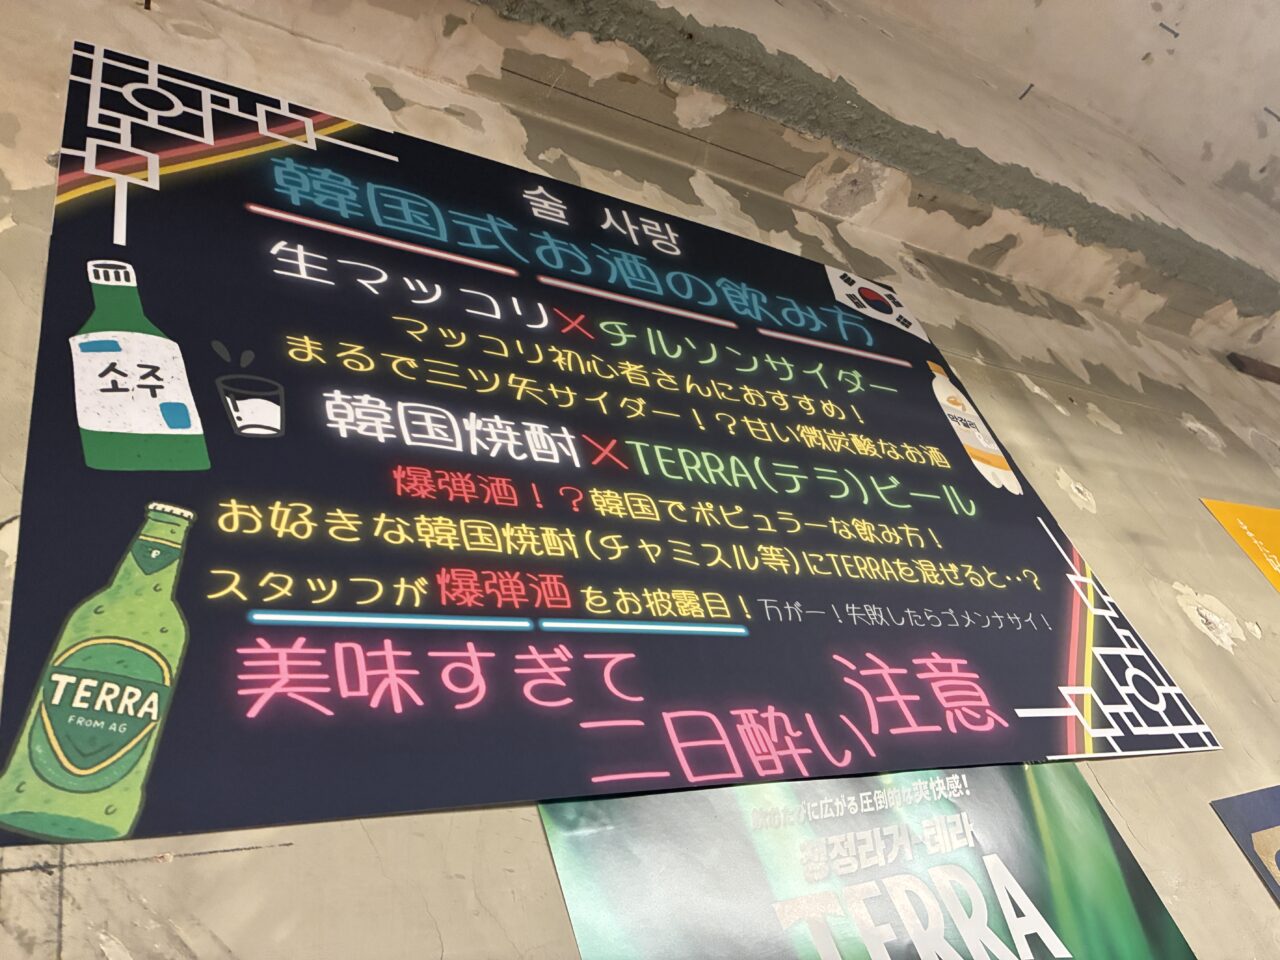 술 사랑
韓国式お酒の飲み方
生マッコリ×チルソンサイダー
マッコリ初心者さんにおすすめ！
まるで三ツ矢サイダー！？甘い微炭酸なお酒
韓国焼酎×TERRA(テラ)ビール
爆弾酒！？韓国でポピュラーな飲み方！
お好きな韓国焼酎(チャミスル等)にTERRAを混ぜると‥？
スタッフが爆弾酒をお披露目！万が一！失敗したらゴメンナサイ！
美味すぎて
二日酔い注意
소주
막걸리
TERRA
FROM AG
飲むたびに広がる圧倒的な爽快感！
청정라거-테라
TERRA